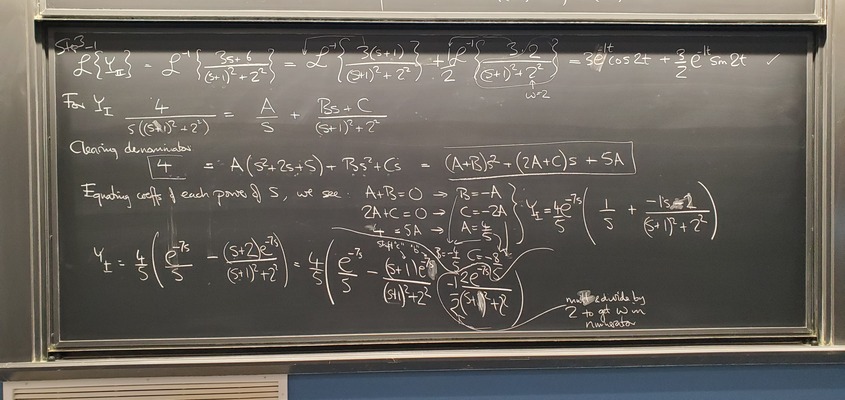 Step 3
ℒ⁻¹{Y_II} = ℒ⁻¹{(3s+6)/((s+1)²+2²)} = ℒ⁻¹{3(s+1)/((s+1)²+2²)} + 1/2 ℒ⁻¹{3·2/((s+1)²+2²)} = 3e^{-1t} cos 2t + 3/2 e^{-1t} sin 2t ✓
w=2
For Y_I 4/(s((s+1)²+2²)) = A/s + (Bs+C)/((s+1)²+2²)
Clearing denominator
4 = A(s²+2s+5) + Bs²+Cs = (A+B)s² + (2A+C)s + 5A
Equating coeffs of each power of S, we see A+B=0 → B=-A
2A+C=0 → C=-2A
4=5A → A=4/5
B=-4/5 C=-8/5
Y_I = 4/5 e^{-7s}(1/s + (-1s-2)/((s+1)²+2²))
Y_I = 4/5(e^{-7s}/s - (s+2)e^{-7s}/((s+1)²+2²)) = 4/5(e^{-7s}/s - (s+1)e^{-7s}/((s+1)²+2²) - 1/2 2e^{-7s}/((s+1)²+2²))
mult & divide by
2 to get w in
numerator